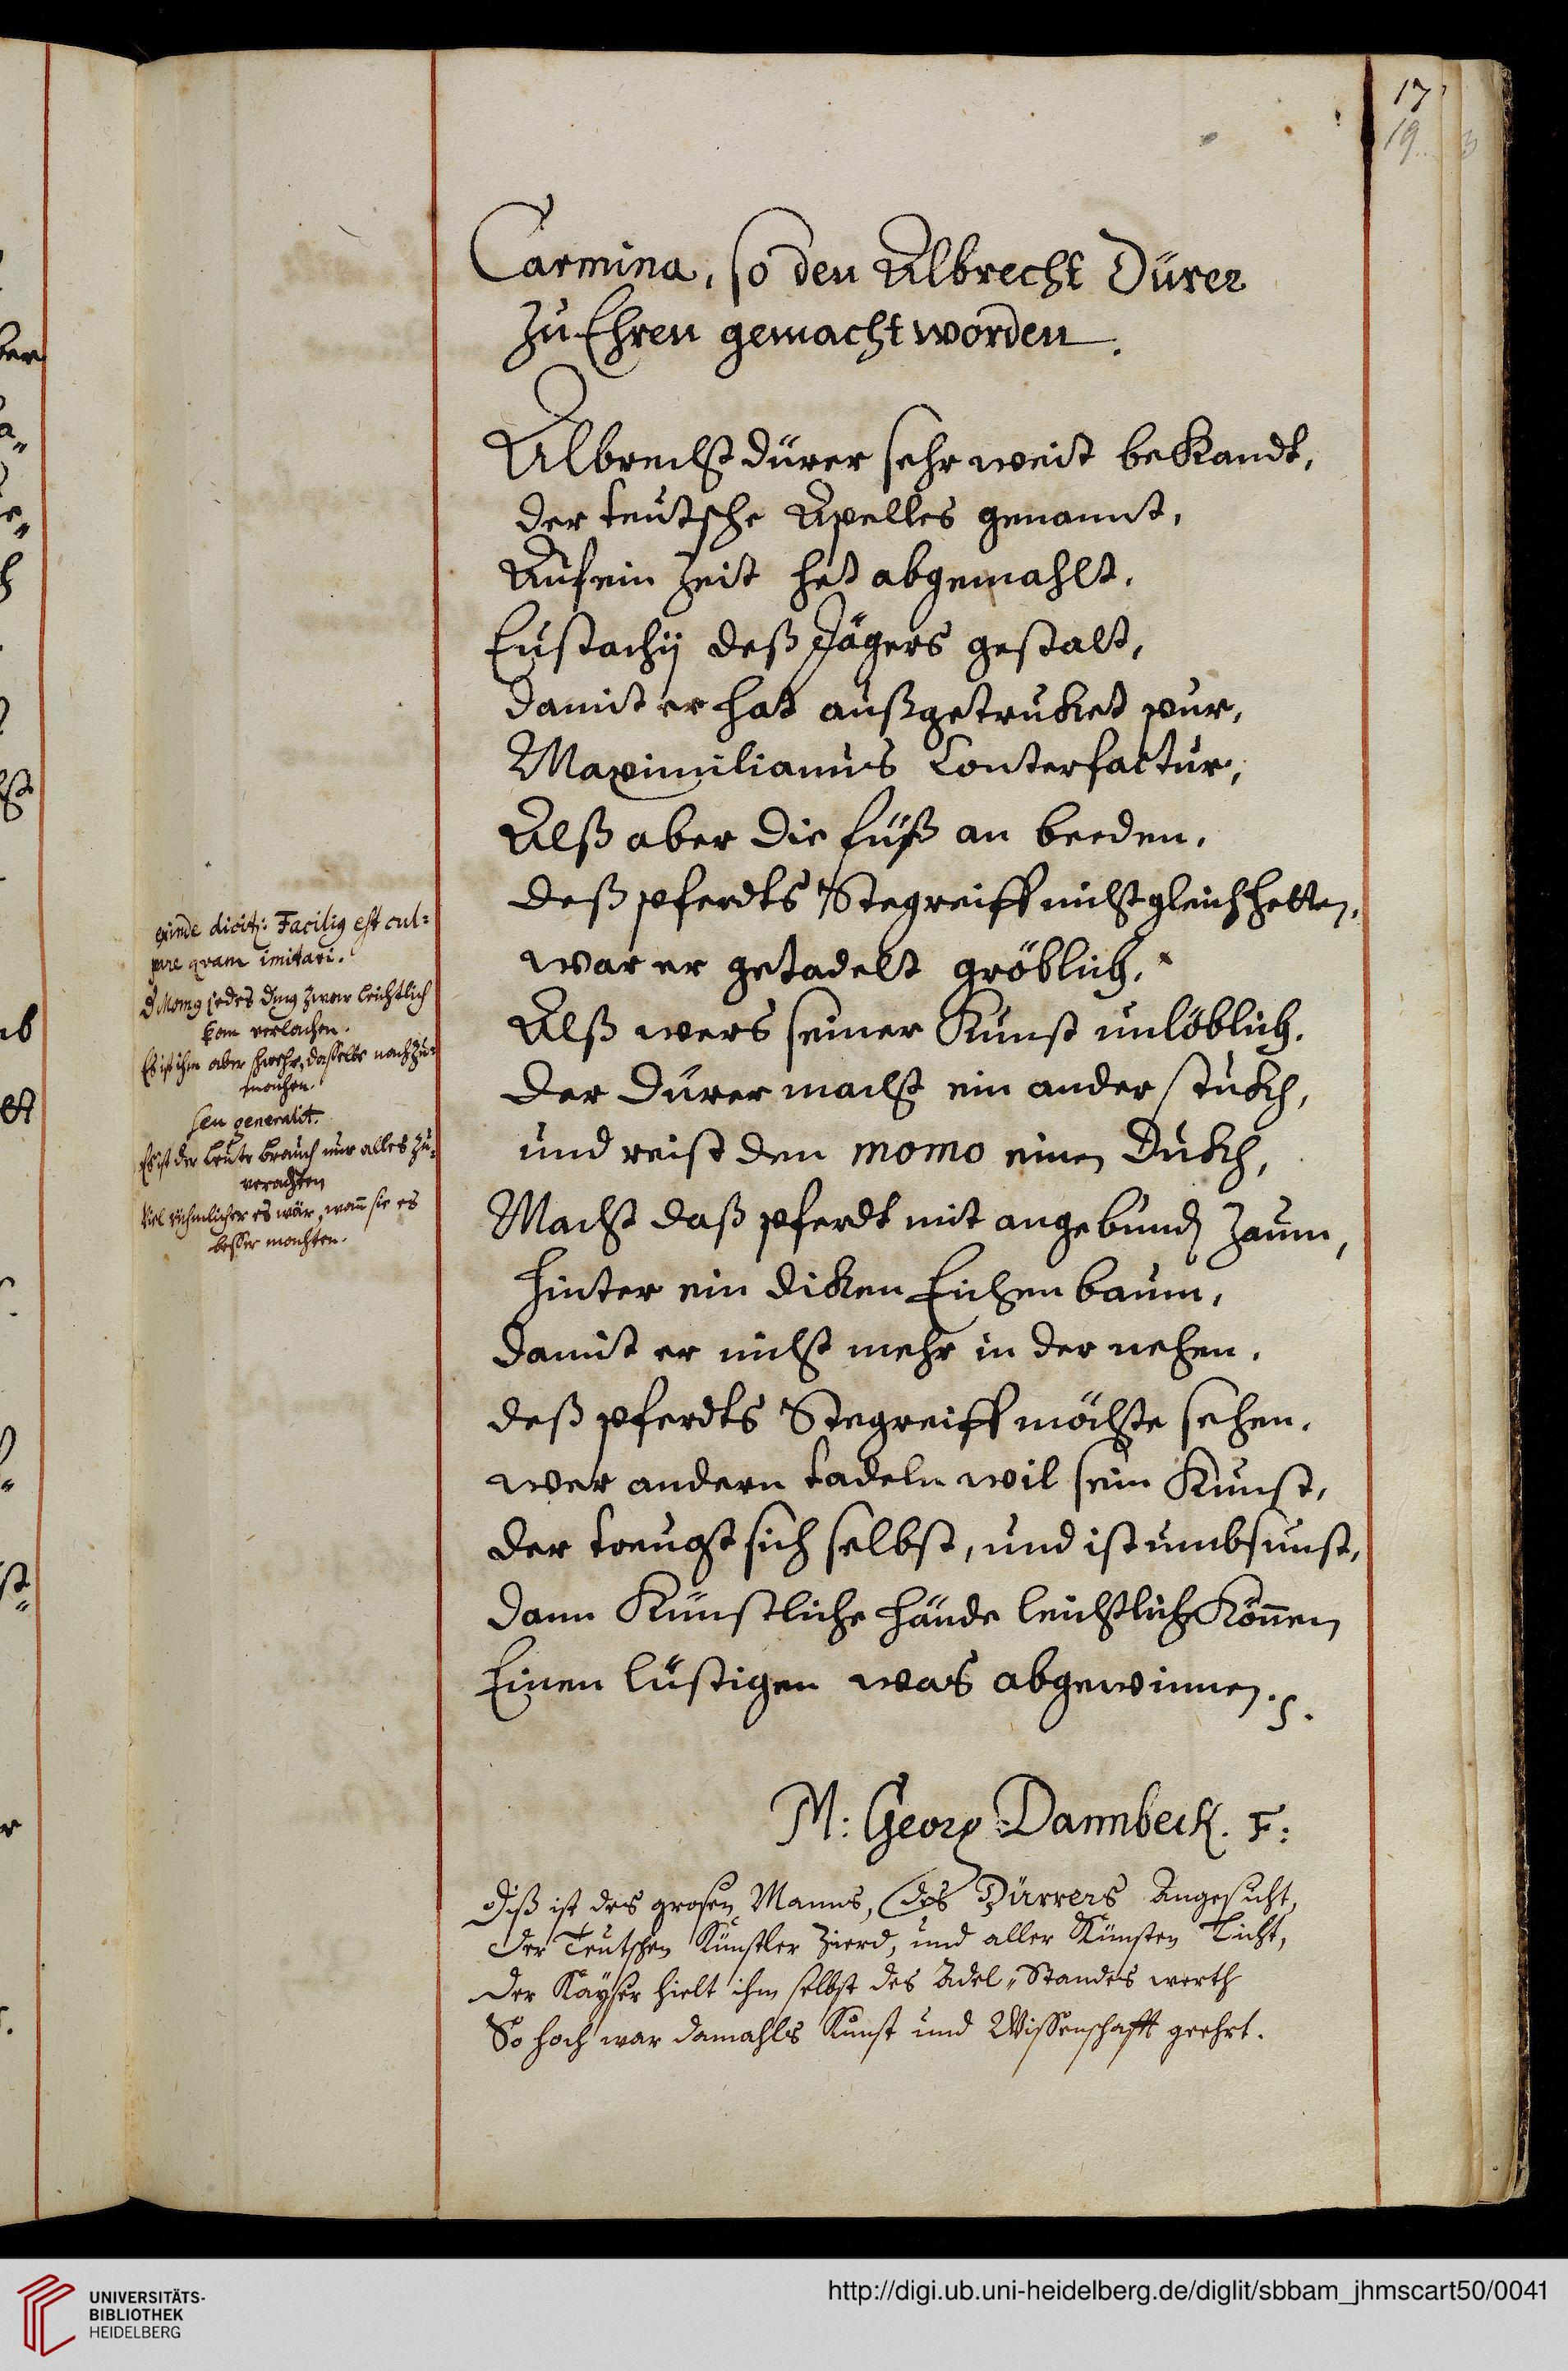 17
19
Carmina, so den Albrecht Dürer
zu Ehren gemacht worden.
Albrecht dürer sehr weit bekandt,
der teutsche Apelles genannt,
Auf ein Zeit het abgemahlt,
Eustachij deß Jägers gestalt,
damit er hat außgetrucket pur,
Maximilianus Conterfactur,
Alß aber die füß an beeden,
deß pferdts Stegreiff nicht gleich hetten,
war er getadelt gröblich,
Alß wers seiner Kunst unlöblich.
der Dürer macht ein ander stuckh,
und reist den momo einen Duckh,
Macht daß pferdt mit angebund Zaum,
hinter ein dicken Eichen baum,
damit er nicht mehr in der nehen,
deß pferdts Stegreiff möchte sehen.
wer andern tadeln wil sein Kunst,
der treugt sich selbst, und ist umbsunst,
dann Künstliche hände leichtlich Können
Einen lüstigen was abgewinnen.
M: Georg Dannbeck. F:
Diß ist des grosen Manns, des Dürrers Angesicht,
Der Teutschen Künstler Zierd, und aller Künsten Licht,
Der Kayser hielt ihn selbst des Adel-Standes werth
So hoch war damahls Kunst und Wissenschafft geehrt.
exinde dicit: Facilius est cul=
pare qvam imitari.
D Momus jedes ding zwar leichtlich
kan verlachen.
Es ist ihm aber schwehr, dasselbe nach zu=
machen.
seu generalit.
Es ist der Leute brauch nur alles zu=
verachten
Viel rühmlicher es wär, wan sie es
besser machten.
UNIVERSITÄTS-
BIBLIOTHEK
HEIDELBERG
http://digi.ub.uni-heidelberg.de/diglit/sbbam_jhmscart50/0041